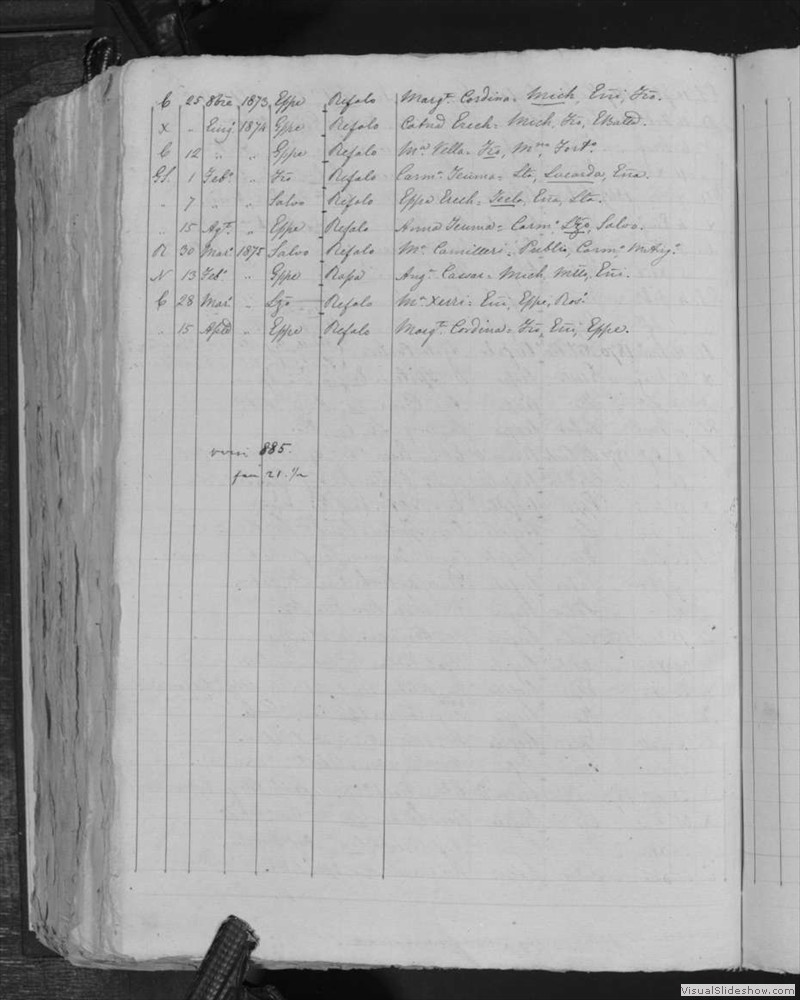 C 25 8bre 1873 Eppe Refalo Margt. Cordina = Mich, Eñi, Fro.
X " Emig 1874 Gppe Refalo Catnd Erech = Mich, Fro,
C 12 " " Gppe Refalo Ma Vella = Fro, Mna, Forta
GS. 1 Feb. " Fro Refalo Carma Teuma = Sta, Lucarda, Eña.
" 7 " " Salvo Refalo Eppa Erech = Tecla, Eña, Sta.
" 15 Agt. " Eppe Refalo Anna Teuma = Carma Lzo, Salvo.
R 30 Mar. 1875 Salvo Refalo Ma Camilleri = Publio, Carma M Ang.
N 13 Feb. " Gppe Rapa Ang. Cassar = Mich, Eñi.
C 28 Mar. " Lzo Refalo Ma Xerri = Eñi, Eppe, Ros.
" 15 Aple " Eppe Refalo Margt. Cordina = Fro, Eñi, Eppe.
885.
21.
VisualSlideshow.com